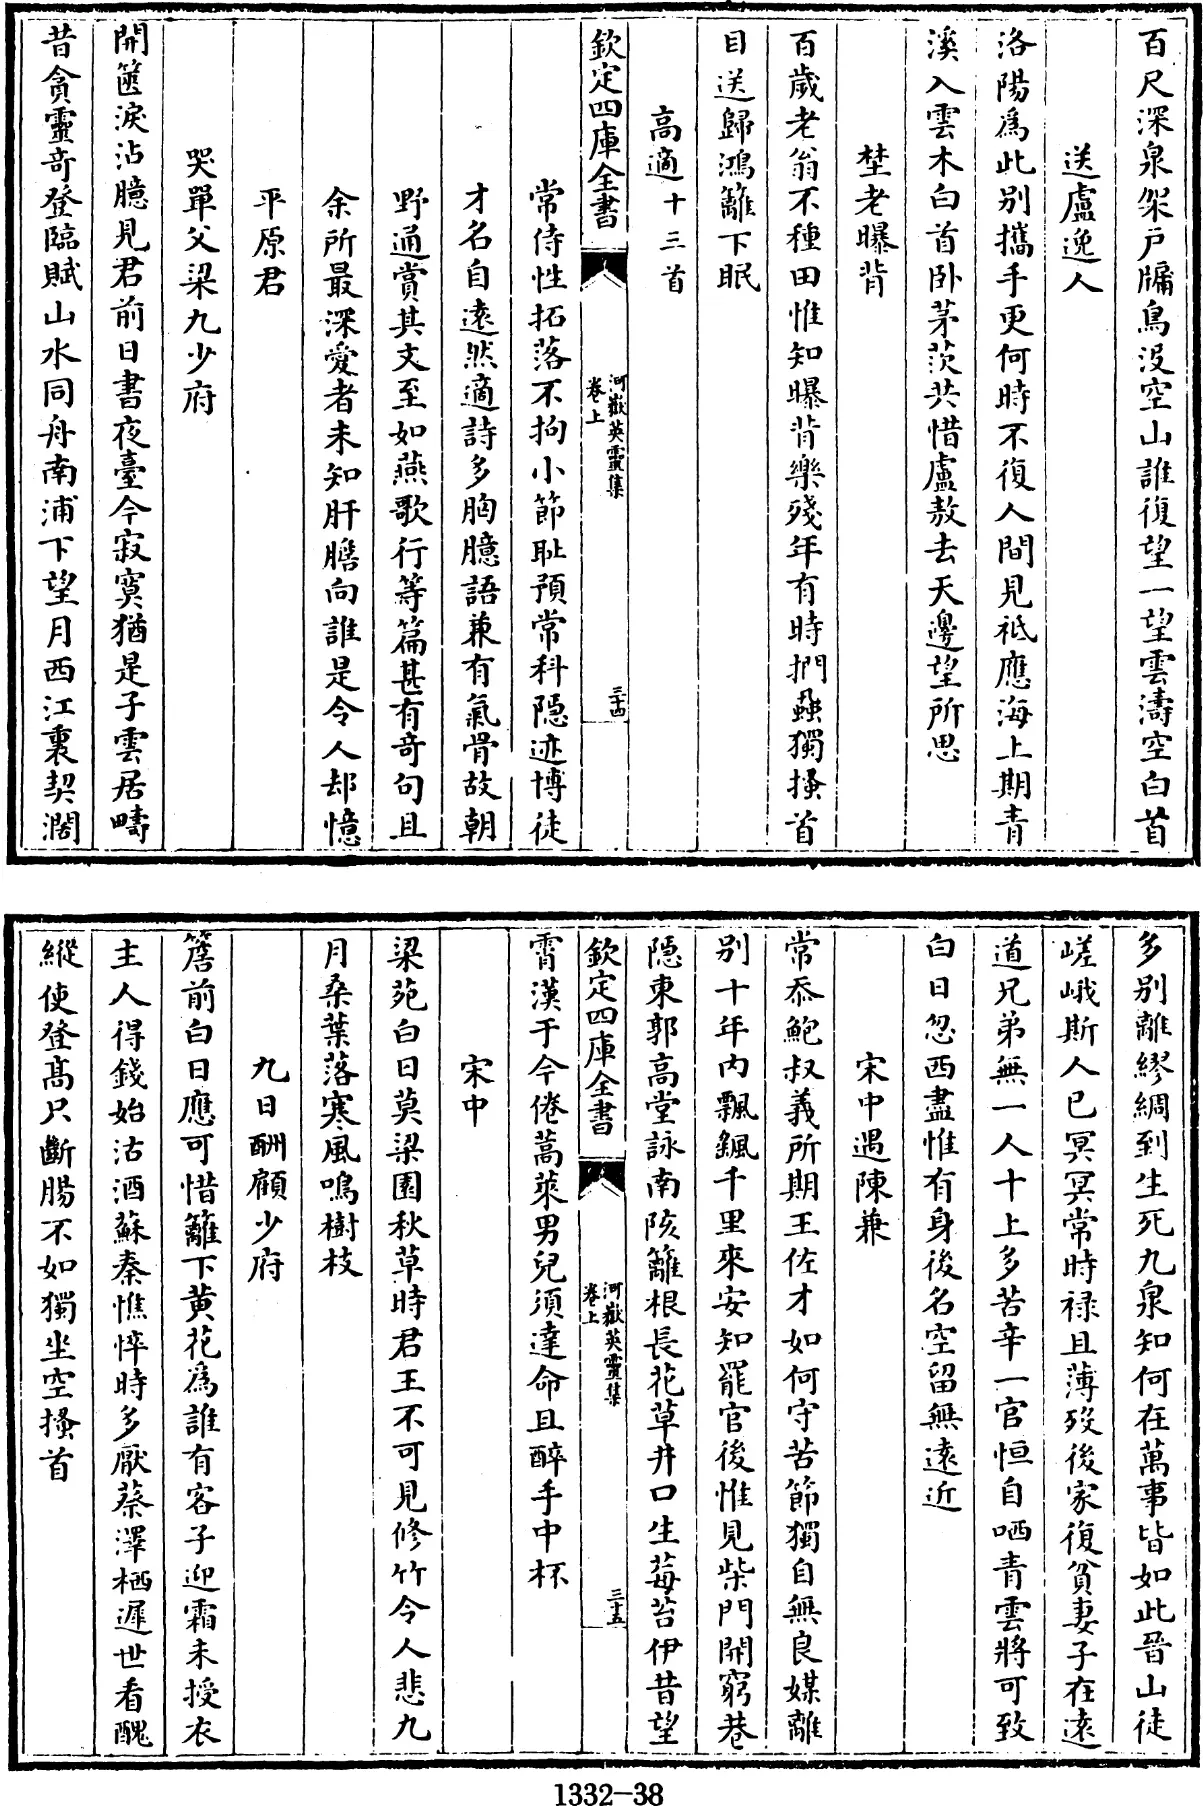 百尺深泉架户牖鳥没空山誰復望一望雲濤空白首
送盧逸人
洛陽為此别攜手更何時不復人間見祗應海上期青
溪入雲木白首卧茅茨共惜盧敖去天邊望所思
埜老曝背
百歲老翁不種田惟知曝背樂殘年有時捫蝨獨搔首
目送歸鴻籬下眠
高適十三首
欽定四庫全書
河嶽英靈集
卷上
三十四
常侍性拓落不拘小節耻預常科隠迹博徒
才名自遠然適詩多胸臆語兼有氣骨故朝
野通賞其文至如燕歌行等篇甚有竒句且
余所最深愛者未知肝膽向誰是令人却憶
平原君
哭單父梁九少府
開篋淚沾臆見君前日書夜臺今寂寞猶是子雲居疇
昔貪靈竒登臨賦山水同舟南浦下望月西江裏契濶
多别離繆綢到生死九泉知何在萬事皆如此晉山徒
嵯峨斯人已冥冥常時禄且薄歿後家復貧妻子在遠
道兄弟無一人十上多苦辛一官恒自哂青雲將可致
白日忽西盡惟有身後名空留無遠近
宋中遇陳兼
常忝鮑叔義所期王佐才如何守苦節獨自無良媒離
别十年内飄颻千里來安知罷官後惟見柴門開窮巷
隠東郭高堂詠南陔籬根長花草井口生莓苔伊昔望
欽定四庫全書
河嶽英靈集
卷上
三十五
霄漢于今倦蒿萊男兒須達命且醉手中杯
宋中
梁苑白日莫梁園秋草時君王不可見修竹令人悲九
月桑葉落寒風鳴樹枝
九日酬顧少府
簷前白日應可惜籬下黄花為誰有客子迎霜未授衣
主人得錢始沽酒蘇秦憔悴時多厭蔡澤栖遲世看醜
縱使登髙只斷腸不如獨坐空搔首
1332-38